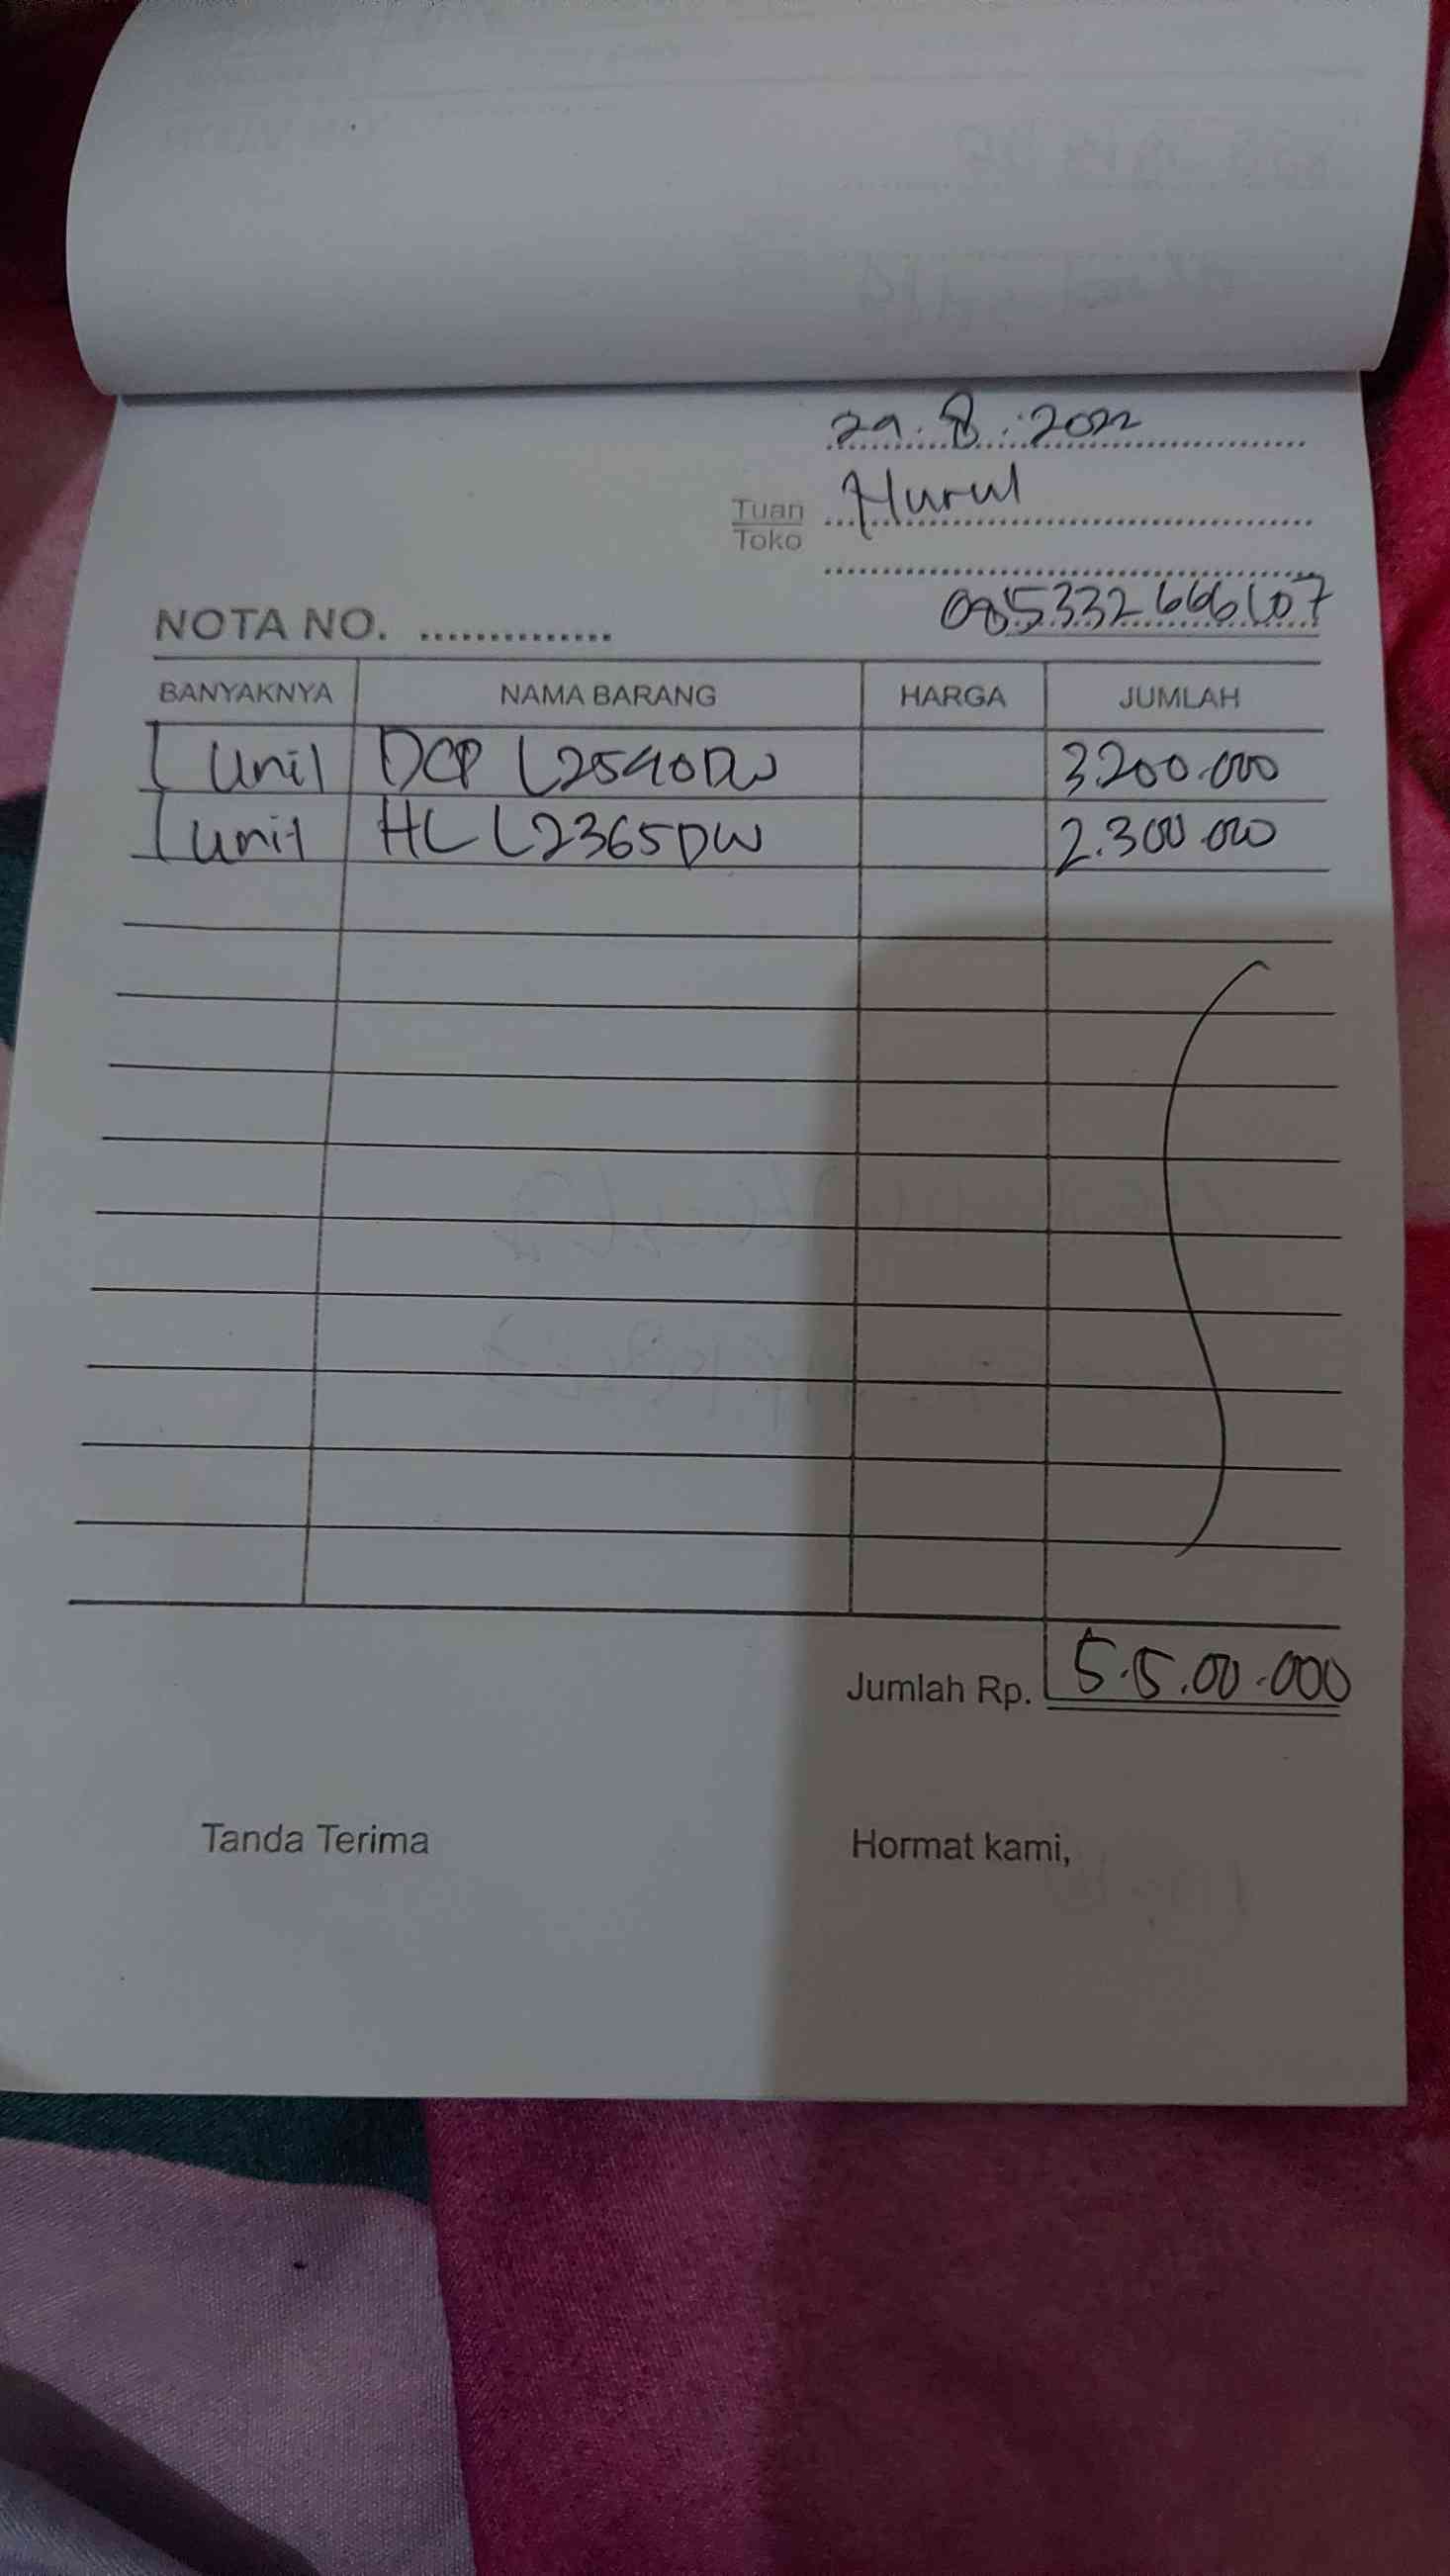 29.8.2022
Tuan
Toko
Hurul
085332666107
NOTA NO. ...............
BANYAKNYA NAMA BARANG HARGA JUMLAH
1 Unit DCP L2540DW 3.200.000
1 unit HL L2365DW 2.300.000
Jumlah Rp. 5.5.00.000
Tanda Terima Hormat kami,